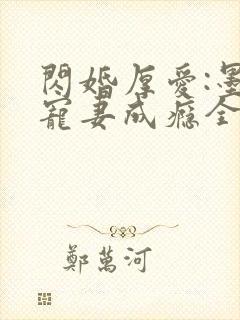 閃婚厚愛:墨
寵妻成癮全
鄭萬河